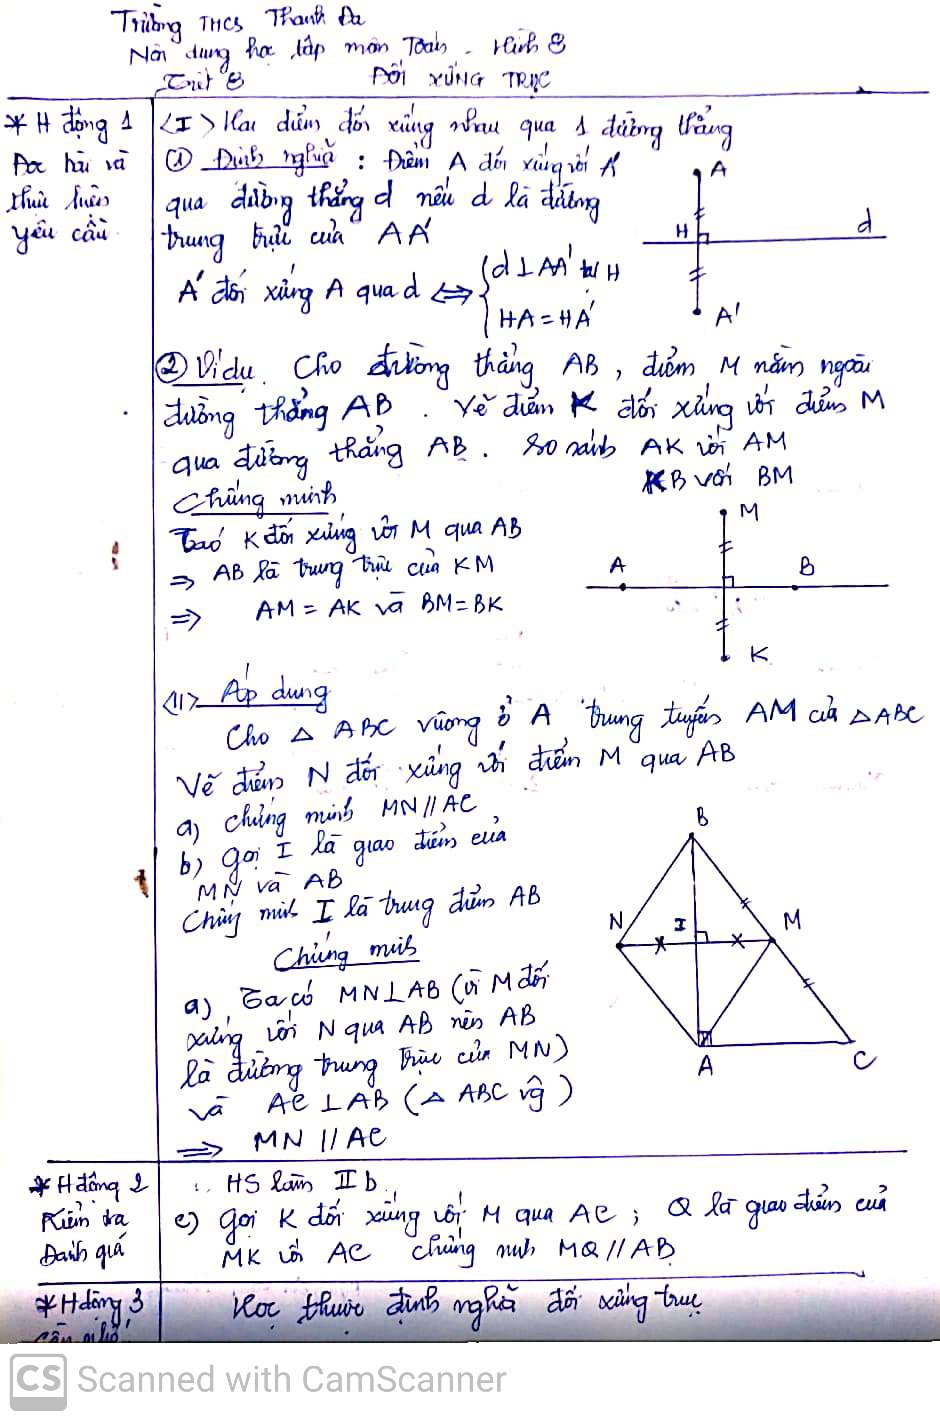 Trường THCS Thanh Đa
Nội dung học tập môn Toán - Hình 8
Tiết 8 ĐỐI XỨNG TRỤC
* H động 1
Đọc bài và
thực hiện
yêu cầu
<I> Hai điểm đối xứng nhau qua 1 đường thẳng
① Định nghĩa : Điểm A đối xứng với A'
qua đường thẳng d nếu d là đường
trung trực của AA'
A' đối xứng A qua d ⇔ { d ⊥ AA' tại H
HA = HA'
A
H
d
A'
② Ví dụ. Cho đường thẳng AB, điểm M nằm ngoài
đường thẳng AB. Vẽ điểm K đối xứng với điểm M
qua đường thẳng AB. So sánh AK với AM
KB với BM
Chứng minh
Ta có K đối xứng với M qua AB
⇒ AB là trung trực của KM
⇒ AM = AK và BM = BK
M
A
B
K
<II> Áp dụng
Cho △ ABC vuông ở A trung tuyến AM của △ABC
Vẽ điểm N đối xứng với điểm M qua AB
a) chứng minh MN // AC
b) gọi I là giao điểm của
MN và AB
Chứng minh I là trung điểm AB
Chứng minh
a) Ta có MN ⊥ AB (vì M đối
xứng với N qua AB nên AB
là đường trung trực của MN)
và AC ⊥ AB (△ ABC vg)
⇒ MN // AC
B
N
I
M
A
C
* H động 2
Kiểm tra
Đánh giá
HS làm II b
c) gọi K đối xứng với M qua AC ; Q là giao điểm của
MK với AC chứng minh MQ // AB
* H động 3
Cần nhớ
Học thuộc định nghĩa đối xứng trục
CS Scanned with CamScanner